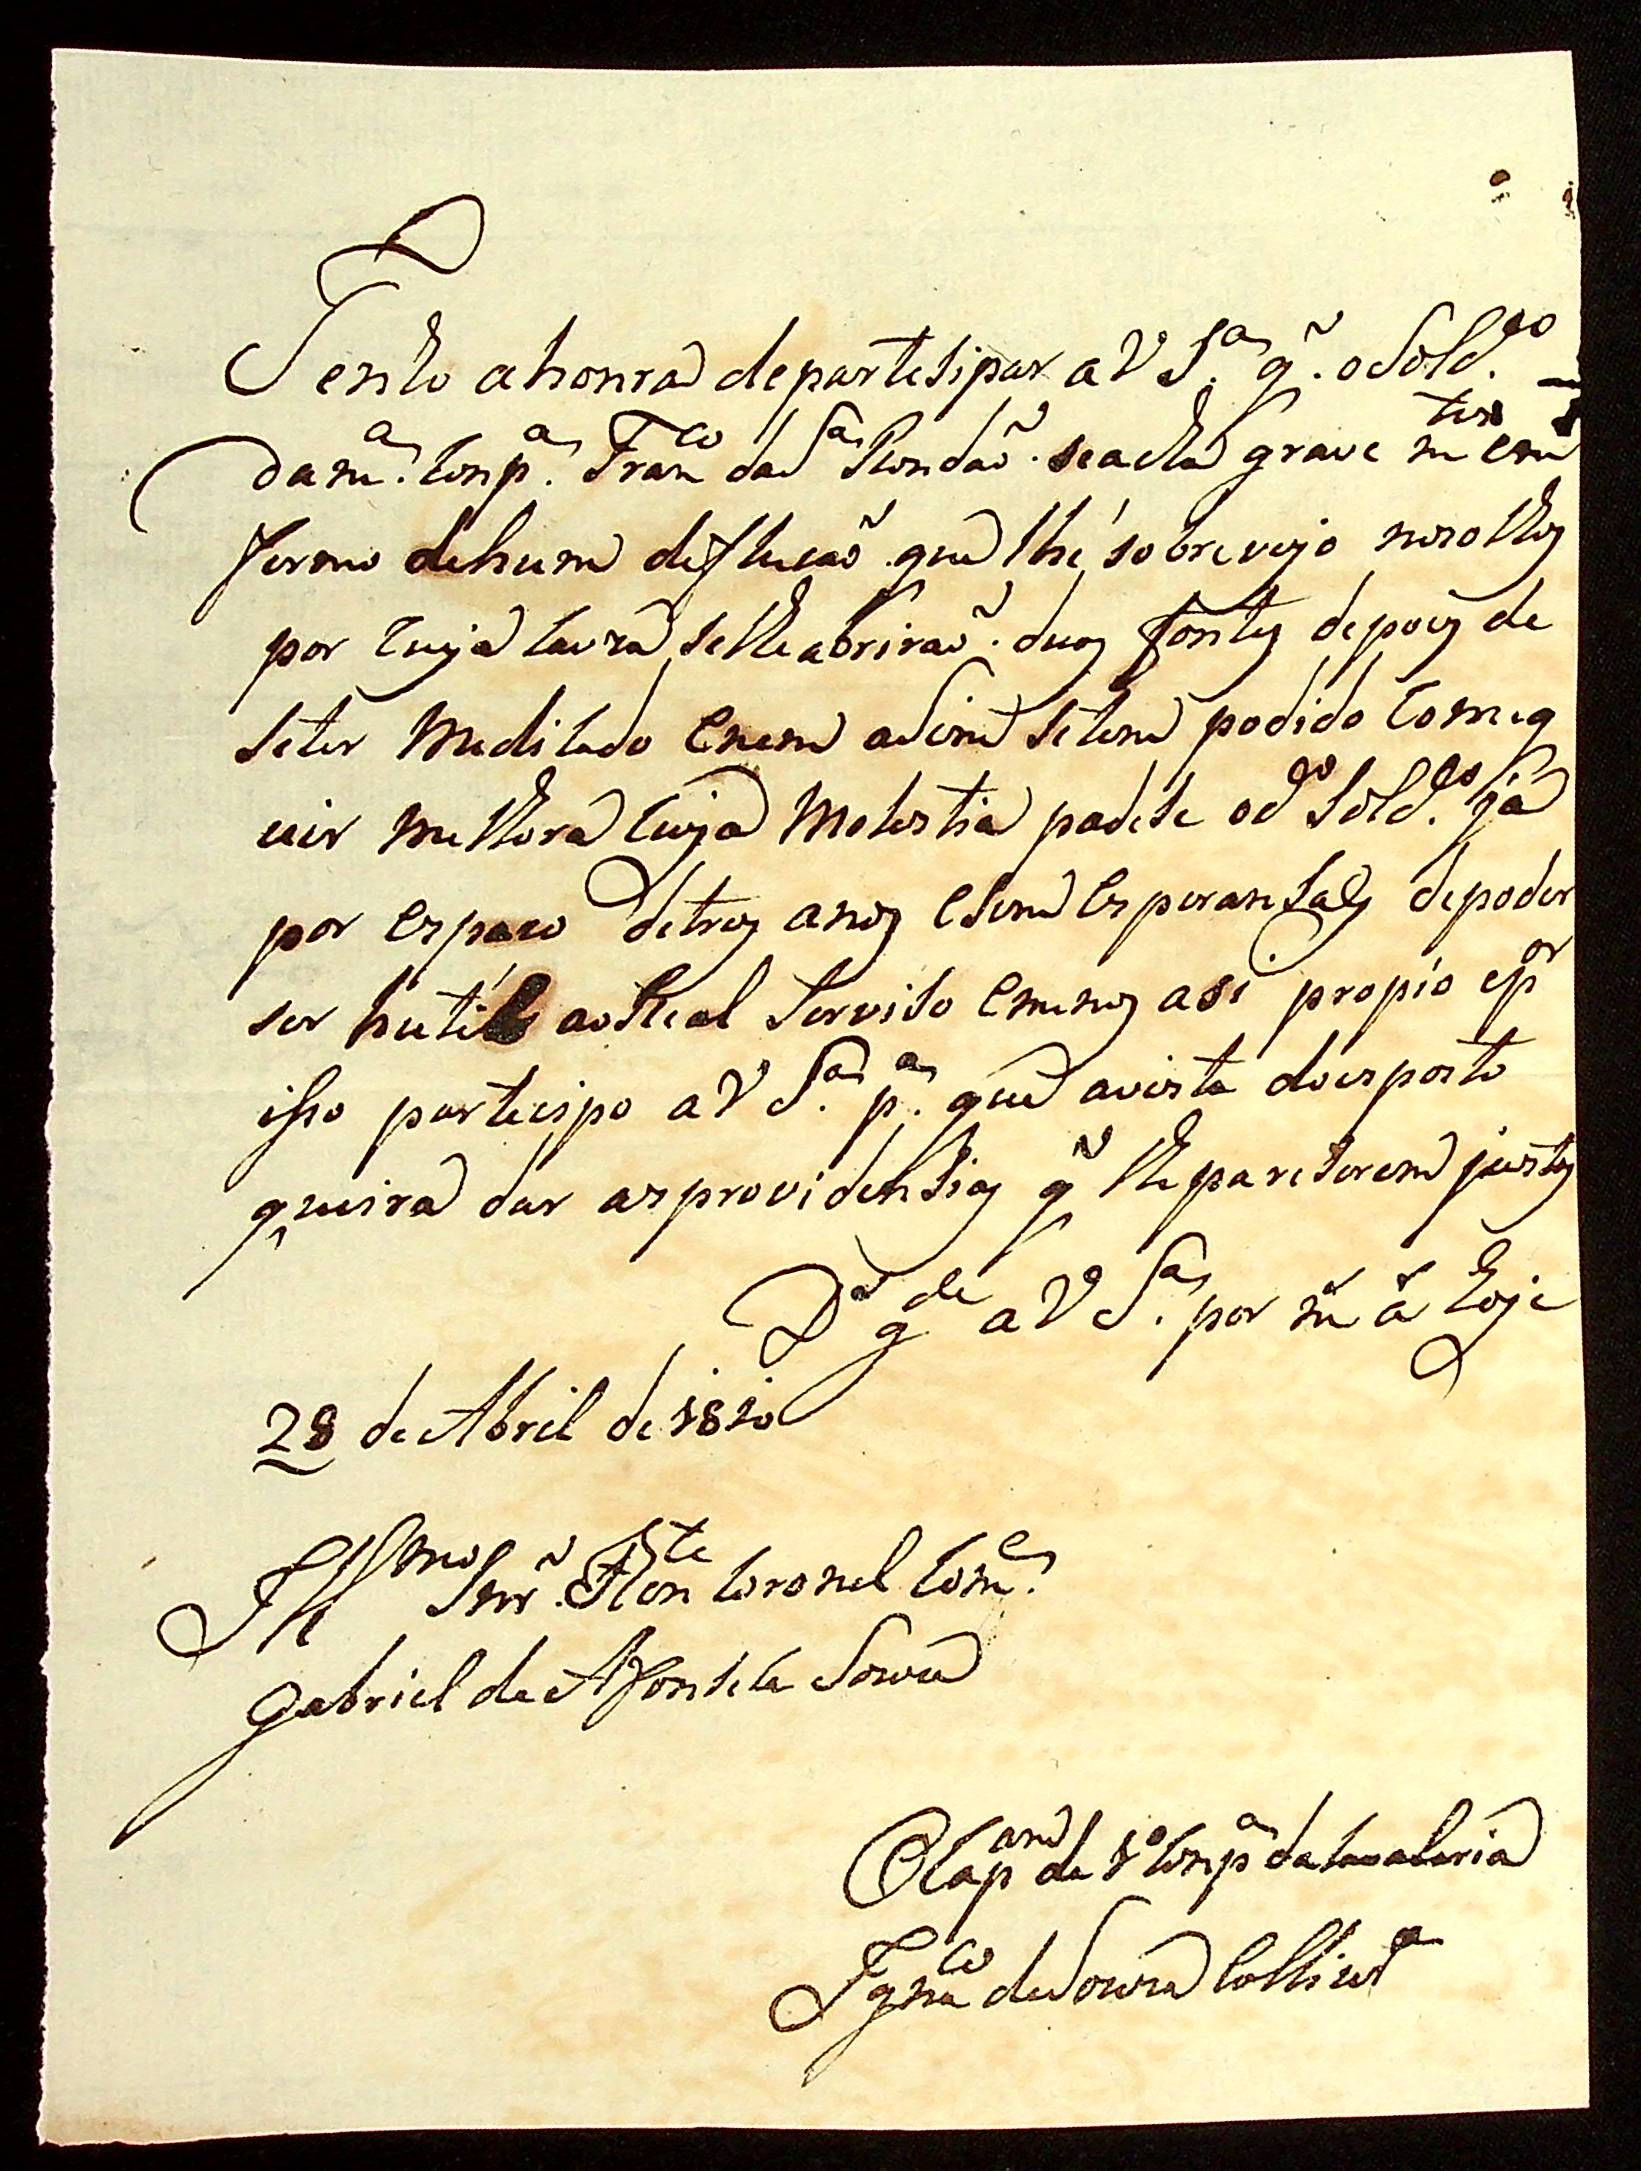 Tenho ahonra departesipar a V S.ª q̃. o Sold.do
da m.ª Conp.ª Franco da S.ª Rondaõ. seacha grave mte en
fermo dehum defluxaõ que lhe sobreveyo nosolhos
por cuja cauza selheabriraõ. duas fontes depois de
seter Medicado Enem asim setem podido Conseg
uir melhora Cuja Molestia padese od.o Sold.do já
por espaco detres anos esem Esperansas depoder
ser hutil aoReal Serviso Emenos asi propio epor
isso partecipo a V S.ª p.ª que avista doesposto
queira dar asprovidensias q̃ lhepareserem justas
D.s g.de a V S.ª por m.s a.s hoje
28 de Abril de 1810
Illmo Snr̃. Ten.te Coronel Com.e
Gabriel da Afonseca Souza
O Cap.am da 1ª Conp.ª da Cavalaria
Ignaco de Souza